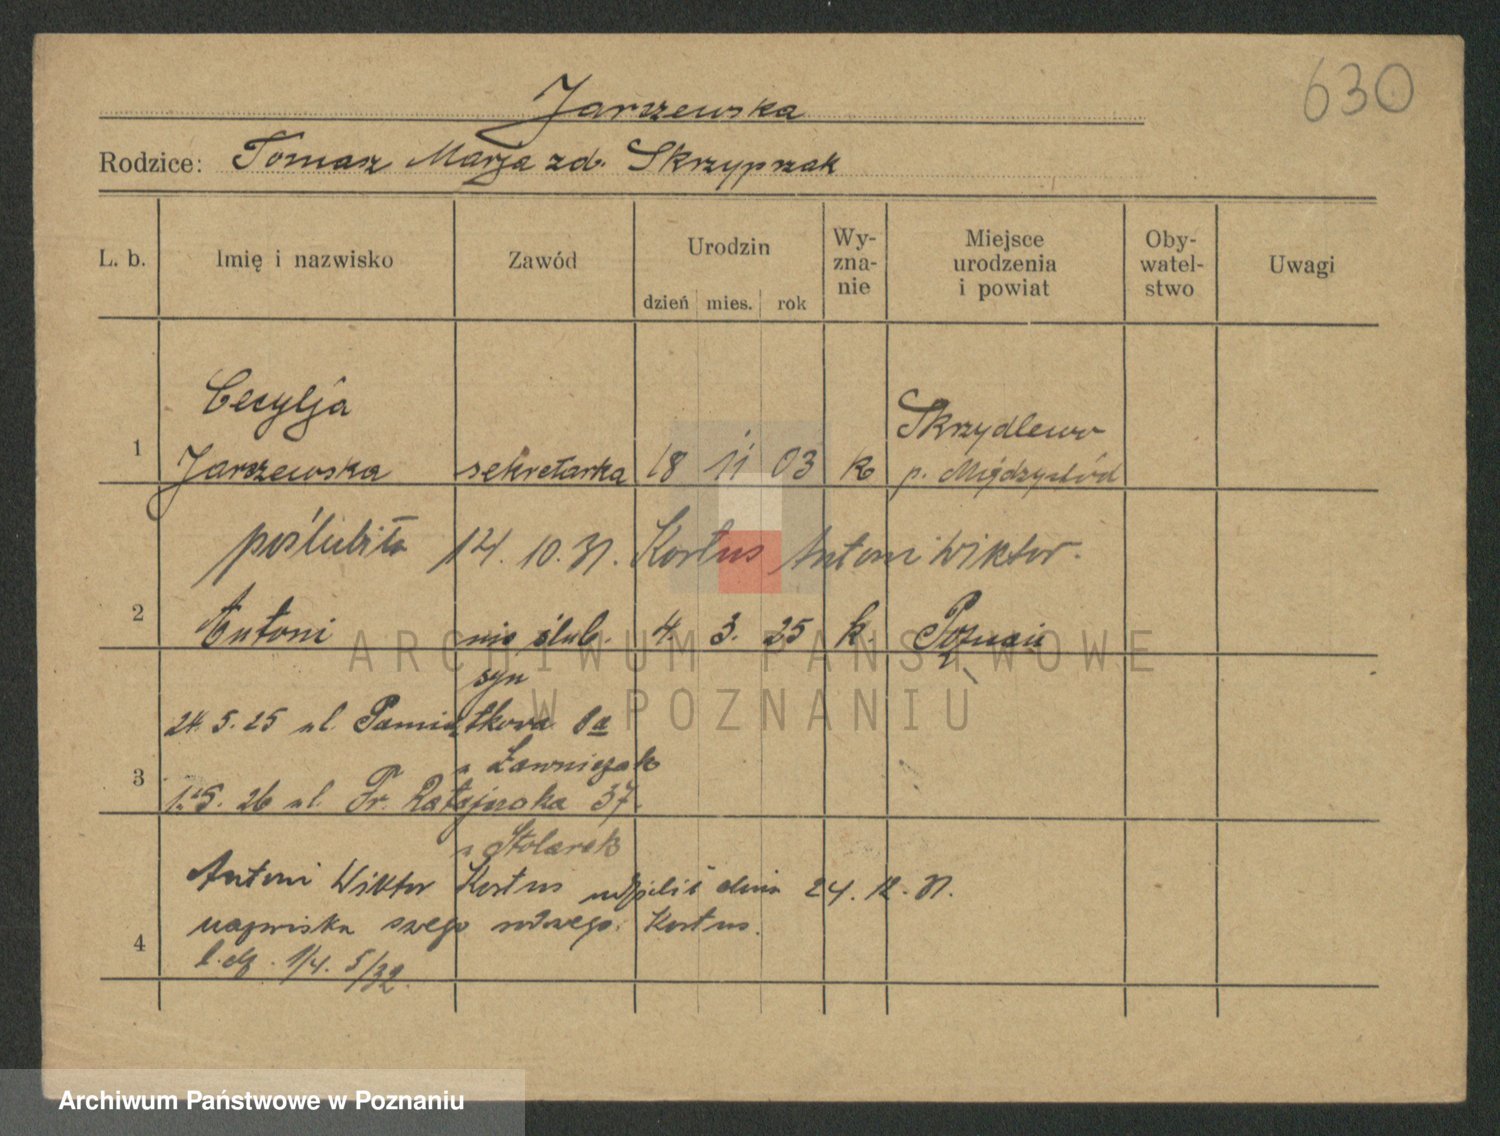 630
Jarszewska
Rodzice: Tomasz Marja zd. Skrzypczak
L. b. Imię i nazwisko Zawód Urodzin dzień mies. rok Wy-zna-nie Miejsce urodzenia i powiat Oby-watel-stwo Uwagi
Cecylja Skrzydlewo
1 Jarszewska sekretarka 18 11 03 k p. Międzychód
poślubiła 14. 10. 31. Kortus Antoni Wiktor.
2 Antoni nieślub. 4. 3. 25 k. Poznań
syn
24. 5. 25 ul. Pamiątkowa 8a
u Ławniczak
3 1. 5. 26 ul. Fr. Ratajczaka 37.
u Stolarek
Antoni Wiktor Kortus udzielił dnia 24. 12. 31.
nazwiska swego rodowego: Kortus.
4 l. dz. 1/4. 5/32.
ARCHIWUM PAŃSTWOWE
W POZNANIU
Archiwum Państwowe w Poznaniu